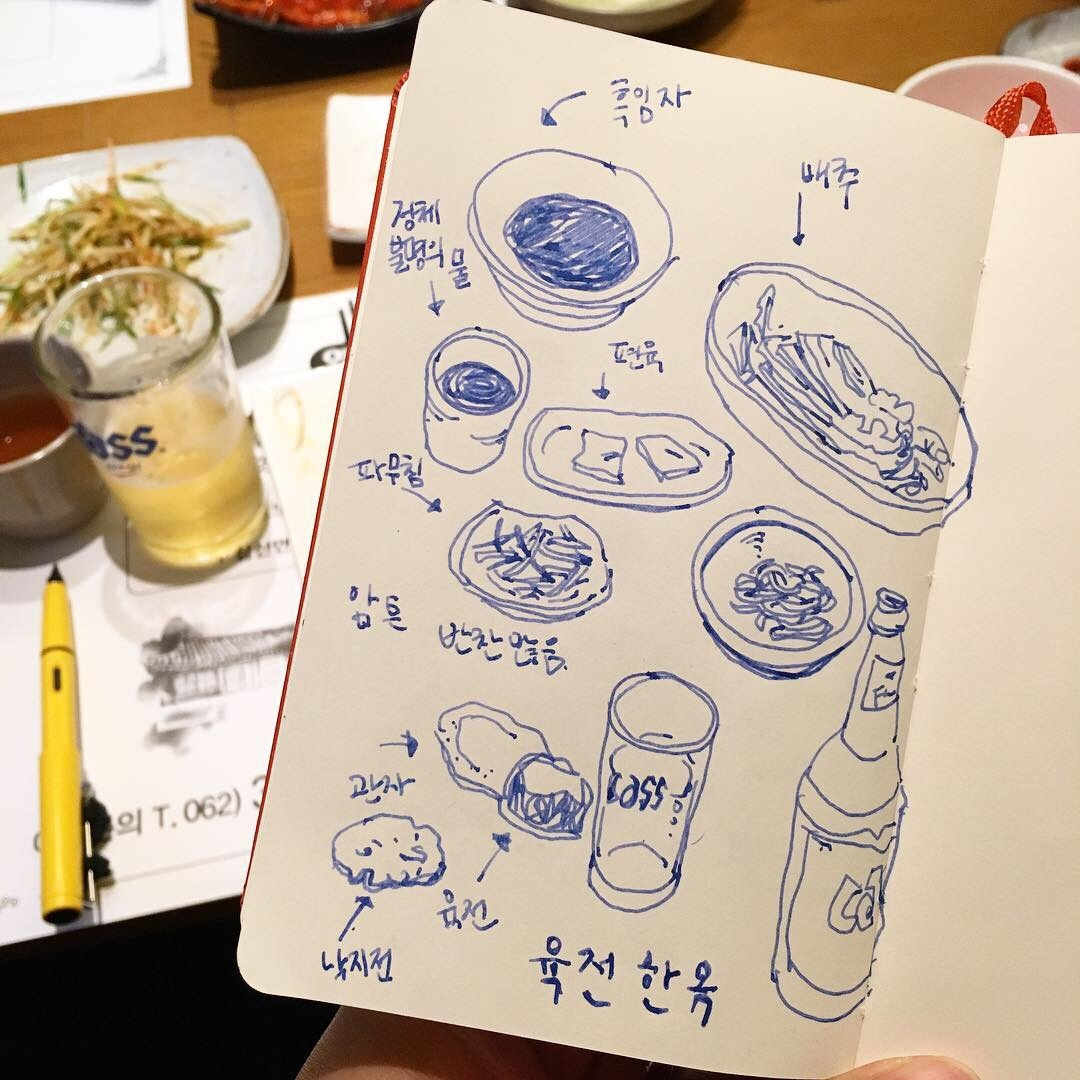 흑임자
배추
정체
불명의 물
편육
파무침
암튼
반찬 많음.
관자
cass
육전
낙지전
육전 한옥
cass
의 T. 062) 3